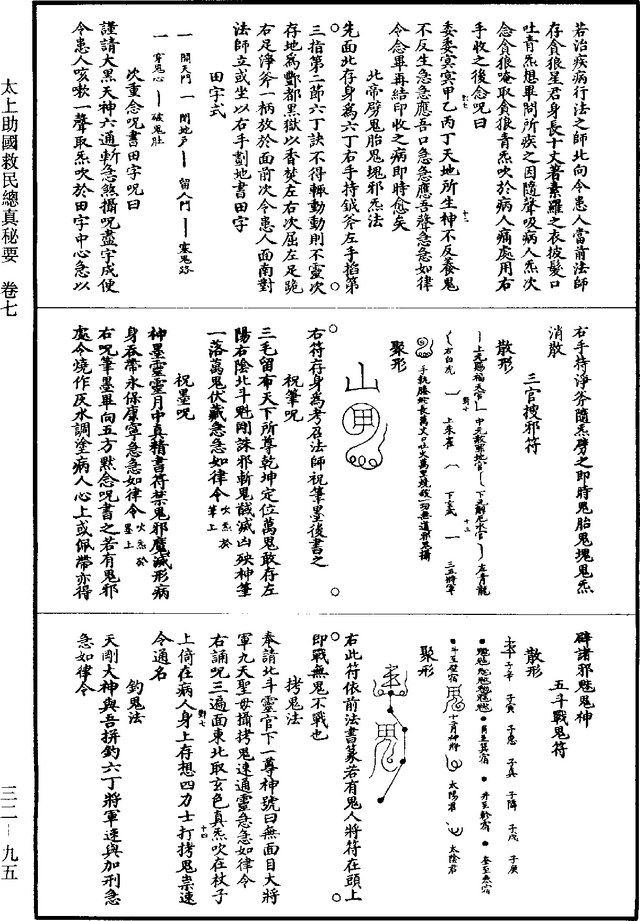 若治疾病行法之師北向令患人當前法師
存貪狼星君身長十丈著素羅之衣披髮口
吐青炁想畢問所疾之因隨聲吸病人炁次
念貪狼唵取貪狼青炁吹於病人痛處用右
手收之後念呪曰
委委冥冥甲乙丙丁天地所生神不反養鬼
不反生急急應吾口急急應吾聲急急如律
令念畢再結印收之病即時愈矣
北帝劈鬼胎鬼塊邪炁法
先面北存身為六丁右手持鉞斧左手掐第
三指第二節六丁訣不得輒動動則不靈次
存地為酆都黑獄以香焚左右次屈左足跪
右足淨斧一柄放於面前次令患人面南對
法師立或坐以右手劃地書田字
田字式
一 開天門 一 閉地戶 一 留人門 一 塞鬼路
一 穿鬼心 一 破鬼肚
次重念呪書田字呪曰
謹請大黑天神六通斬急煞攝呪盡字成便
令患人咳嗽一聲取炁吹於田字中心急以
太上助國救民總真秘要 卷七
右手持淨斧隨炁劈之即時鬼胎鬼塊鬼炁
消散
三官捜邪符
散形
上元賜福天官 中元赦罪地官 下元解厄水官 左青龍
右白虎 上朱雀 下玄武 三五將軍
聚形
右符存身為考召法師祝筆墨後書之
祝筆呪
三毛留布天下所尊乾坤定位萬鬼敢存左
陽右陰北斗魁剛誅邪斬鬼馘滅凶殃神筆
一落萬鬼伏藏急急如律令 吹炁於筆上
祝墨呪
神墨靈靈月中真精書符禁鬼邪魔滅形病
身吞帶永保康寧急急如律令 吹炁於墨上
右呪筆墨畢向五方黙念呪書之若有鬼邪
處令燒作灰水調塗病人心上或佩帶亦得
辟諸邪魁鬼神
五斗戰鬼符
散形
十二月神將 太陽君 太陰君
聚形
右此符依前法書篆若有鬼人將符在頭上
即戰無鬼不戰也
拷鬼法
奉請北斗靈官下一尊神號曰無面目大將
軍九天聖毋攝拷鬼速通靈急急如律令
右誦呪三遍面東北取玄色真炁吹在杖子
上倚在病人身上存想四力士打拷鬼祟速
令通名
鈞鬼法
天剛大神與吾拼鈞六丁將軍速與加刑急
急如律令
三二—九五